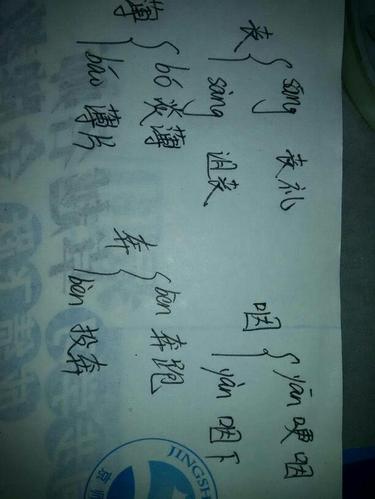 丧
sāng 丧礼
sàng 沮丧
咽
yān 哽咽
yàn 咽下
薄
bó 淡薄
báo 薄片
奔
bēn 奔跑
bèn 投奔
JINGSH